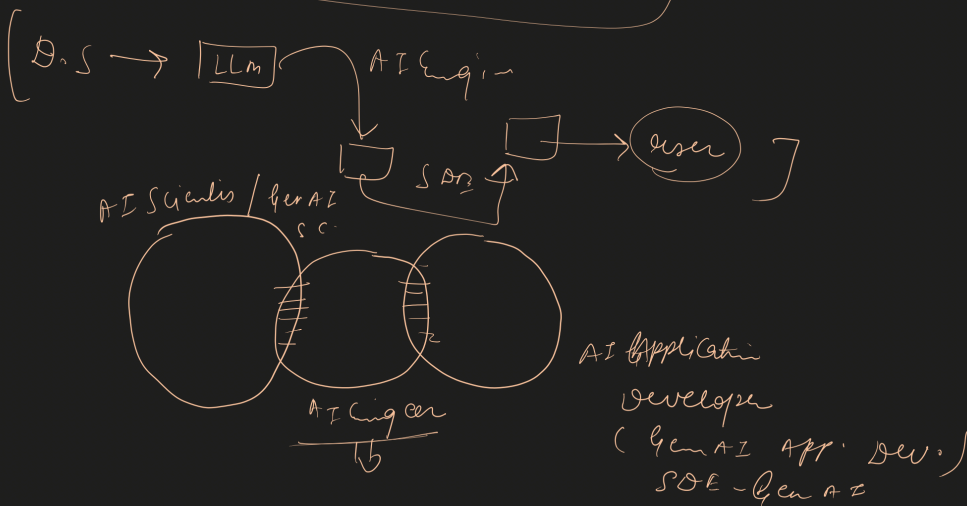 D.S → LLM
AI Engin
user
SDE
AI Scientis / GenAI
SC.
AI Engeer
AI Application
Developer
(GenAI App. Dev.)
SDE - GenAI